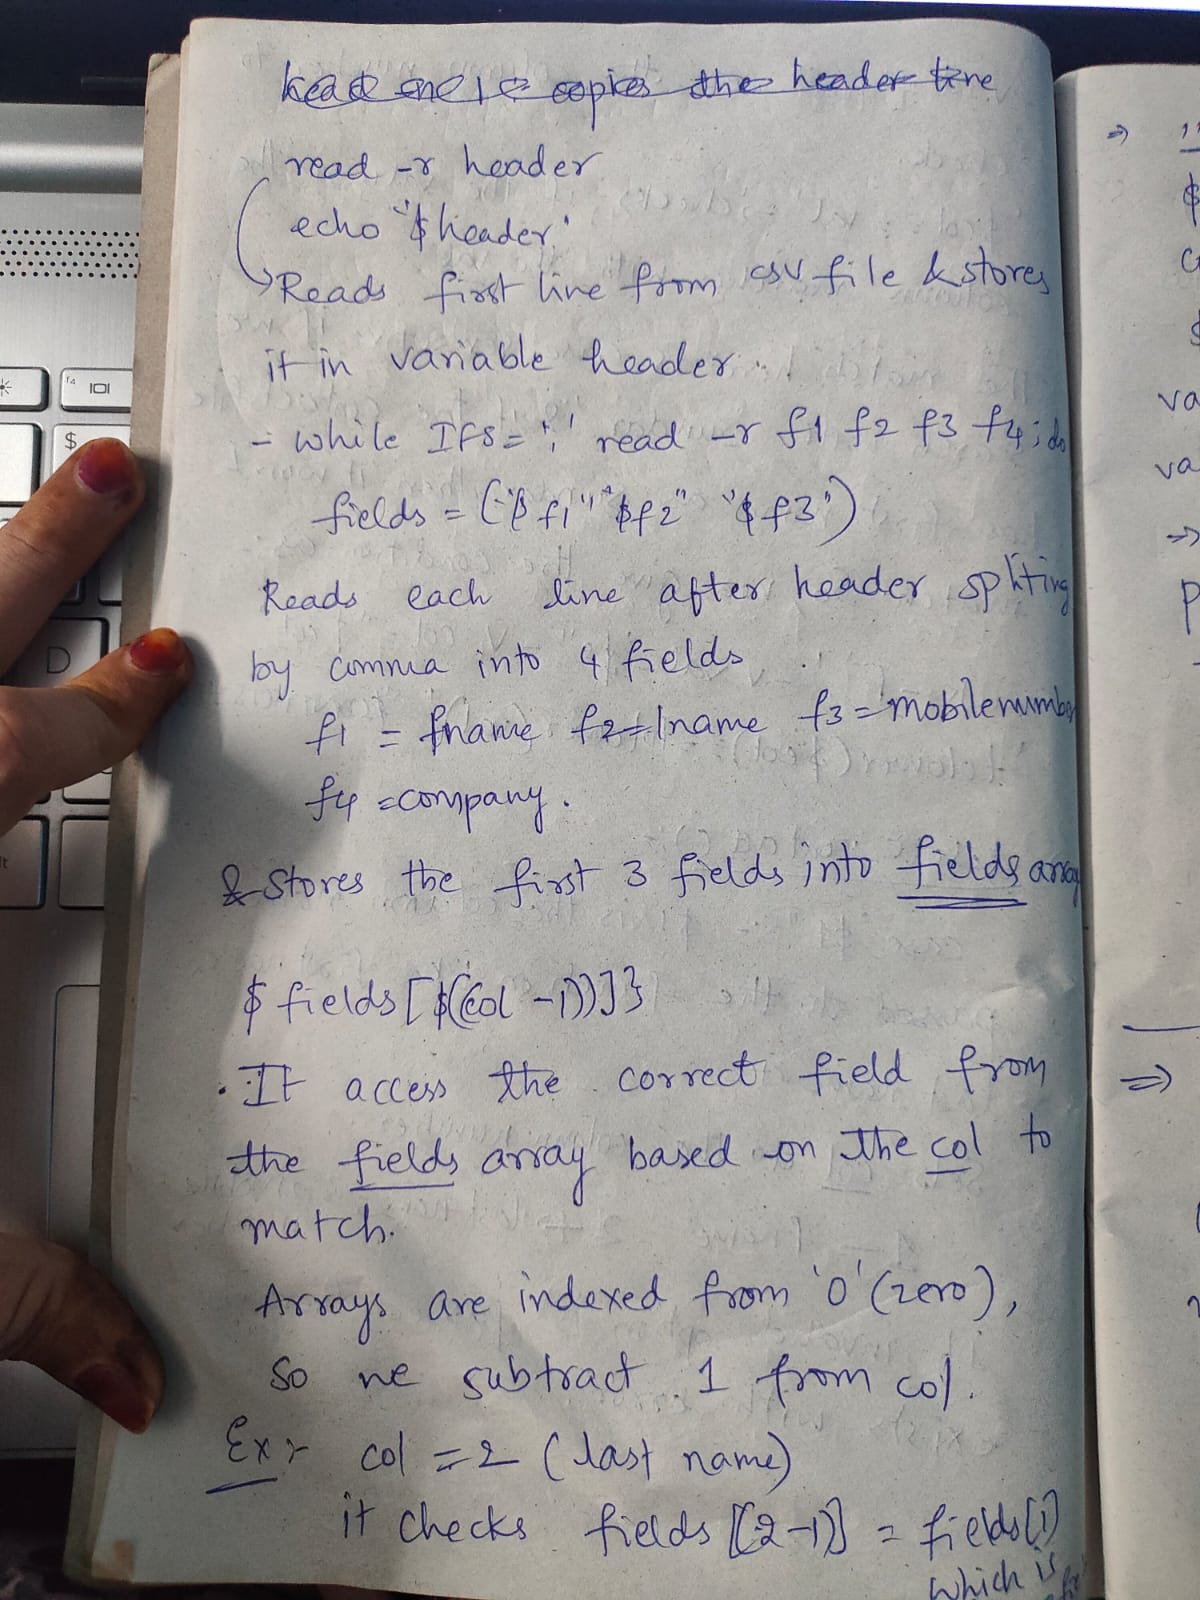 head one 1 copies the header line
read -r header
echo "$header"
Reads first line from csv file & stores
it in variable header.
- while IFS=',' read -r f1 f2 f3 f4; do
fields = ("$f1" "$f2" "$f3")
Reads each line after header spliting
by comma into 4 fields
f1 = fname f2=lname f3=mobilenumber
f4 =company.
& stores the first 3 fields into fields array
$ fields[$((col -1))]}
. It access the correct field from
the fields array based on the col to
match.
Arrays are indexed from '0' (zero),
So we subtract 1 from col.
Ex:- col = 2 (last name)
it checks fields [(2-1)] = fields[1]
which is